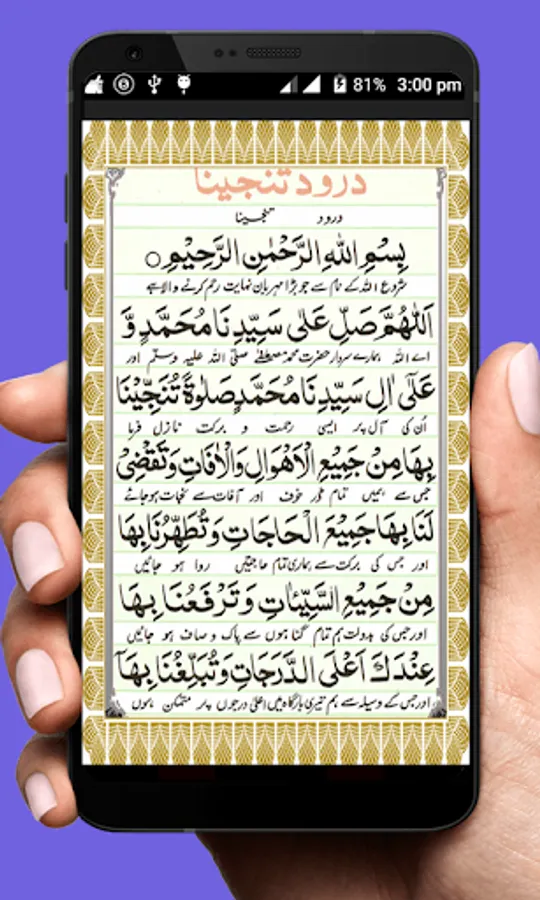 81% 3:00 pm
درود تنجینا
درود تنجینا
بِسْمِ اللهِ الرَّحْمٰنِ الرَّحِيْمِ ○
شروع اللہ کے نام سے جو بڑا مہربان نہایت رحم کرنے والا ہے
اَللّٰهُمَّ صَلِّ عَلٰى سَيِّدِنَا مُحَمَّدٍ وَّ
اے اللہ ہمارے سردار حضرت محمد مصطفےٰ صلی اللہ علیہ وسلم اور
عَلٰٓى اٰلِ سَيِّدِنَا مُحَمَّدٍ صَلٰوةً تُنَجِّيْنَا
اُن کی آل پر ایسی رحمت و برکت نازل فرما
بِهَا مِنْ جَمِيْعِ الْاَهْوَالِ وَالْاٰفَاتِ وَتَقْضِىْ
جس سے ہمیں تمام ڈر خوف اور آفات سے نجات ہوجائے
لَنَا بِهَا جَمِيْعَ الْحَاجَاتِ وَتُطَهِّرُنَا بِهَا
اور جس کی برکت سے ہماری تمام حاجتیں روا ہو جائیں
مِنْ جَمِيْعِ السَّيِّئٰاتِ وَتَرْفَعُنَا بِهَا
اور جس کی بدولت ہم تمام گناہوں سے پاک و صاف ہو جائیں
عِنْدَكَ اَعْلَى الدَّرَجَاتِ وَتُبَلِّغُنَا بِهَآ
اور جس کے وسیلہ سے ہم تیری بارگاہ میں اعلیٰ درجوں پر متمکن ہوں